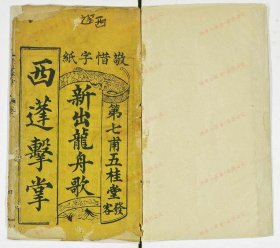 敬惜字紙
第七甫五桂堂發客
新出龍舟歌
西蓬擊掌